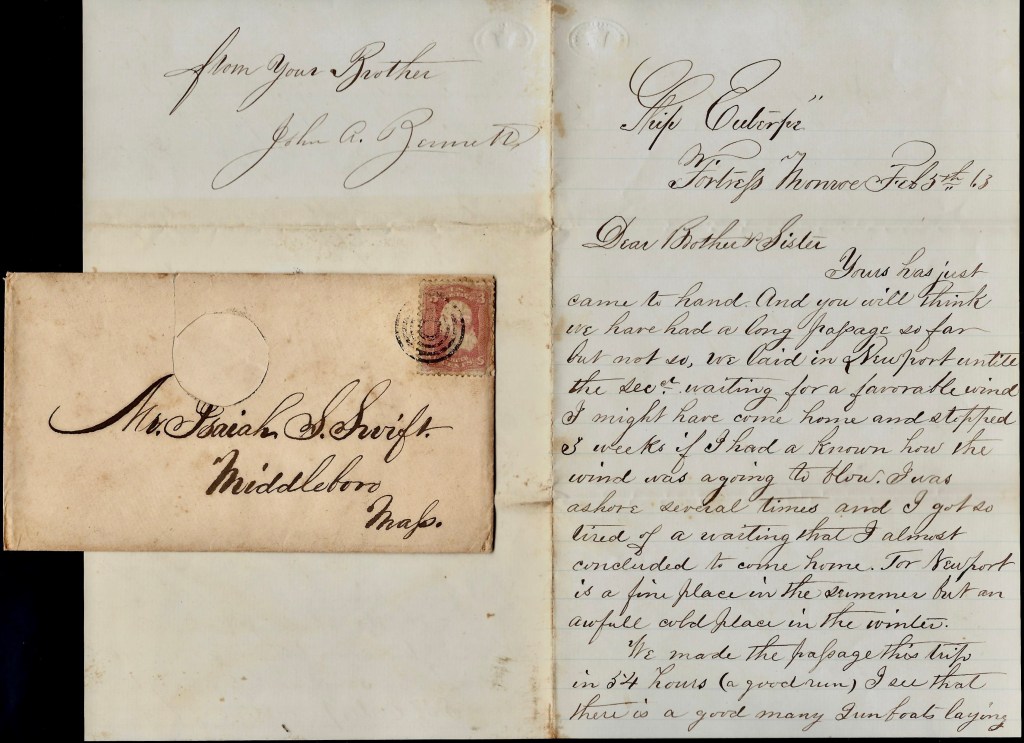 from Your Brother
John A. Bennett
Ship Euterpe"
Fortress Monroe Feb 5th 63
Dear Brother & Sister
Yours has just
came to hand. And you will think
we have had a long passage so far
but not so, we laid in Newport untile
the secd. waiting for a favorable wind
I might have come home and stopped
3 weeks if I had a known how the
wind was agoing to blow. I was
ashore several times and I got so
tired of a waiting that I almost
concluded to come home. For Newport
is a fine place in the summer but an
awfull cold place in the winter.
We made the passage this trip
in 54 hours (a good run) I see that
there is a good many Gunboats laying
Mr. Isaiah S. Swift.
Middleboro
Mass.